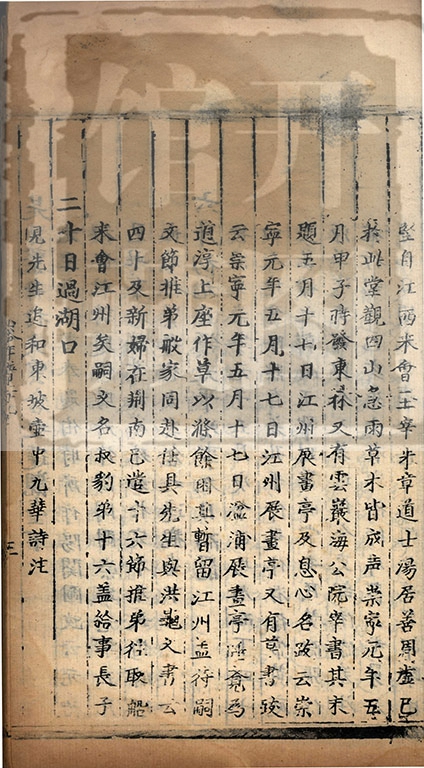 堅自江西來會王宰朱章道士湯居善周虛己
於此堂觀四山急雨草木皆成声崇寧元年五
月甲子時發東林又有雲巖海公院宰書其末
題五月十七日江州展畫亭及息心名跋云崇
寧元年五月十七日江州展畫亭又有草書跋
云崇寧元年五月十七日湓浦展畫亭
道淳上座作草以滌餘困且暫留江州盖待嗣
文節推弟般家同赴任具先生與洪龜父書云
四十及新婦在荆南已遣十六節推弟徑取船
来會江州矣嗣文名叔豹弟十六盖給事長子
二十日過湖口
見先生追和東坡壺中九華詩注
三